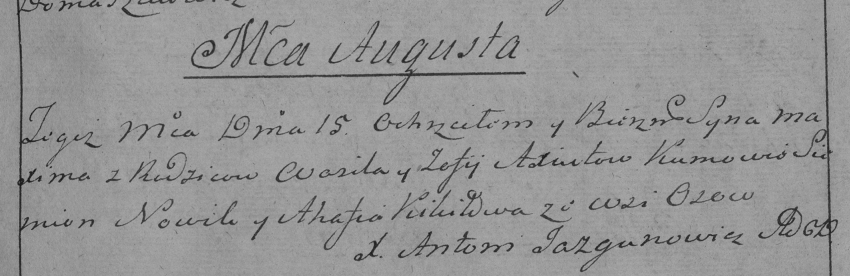 Mca Augusta
Tegoż Mca Dnia 15. Ochrzciłem y Bierzm Syna Ma
xima z Rodzicow Wasila y Zofij Axiutow Kumowie Sie
mion Nowik y Ahafia ze wsi Osow
X. Antoni Jazgunowicz